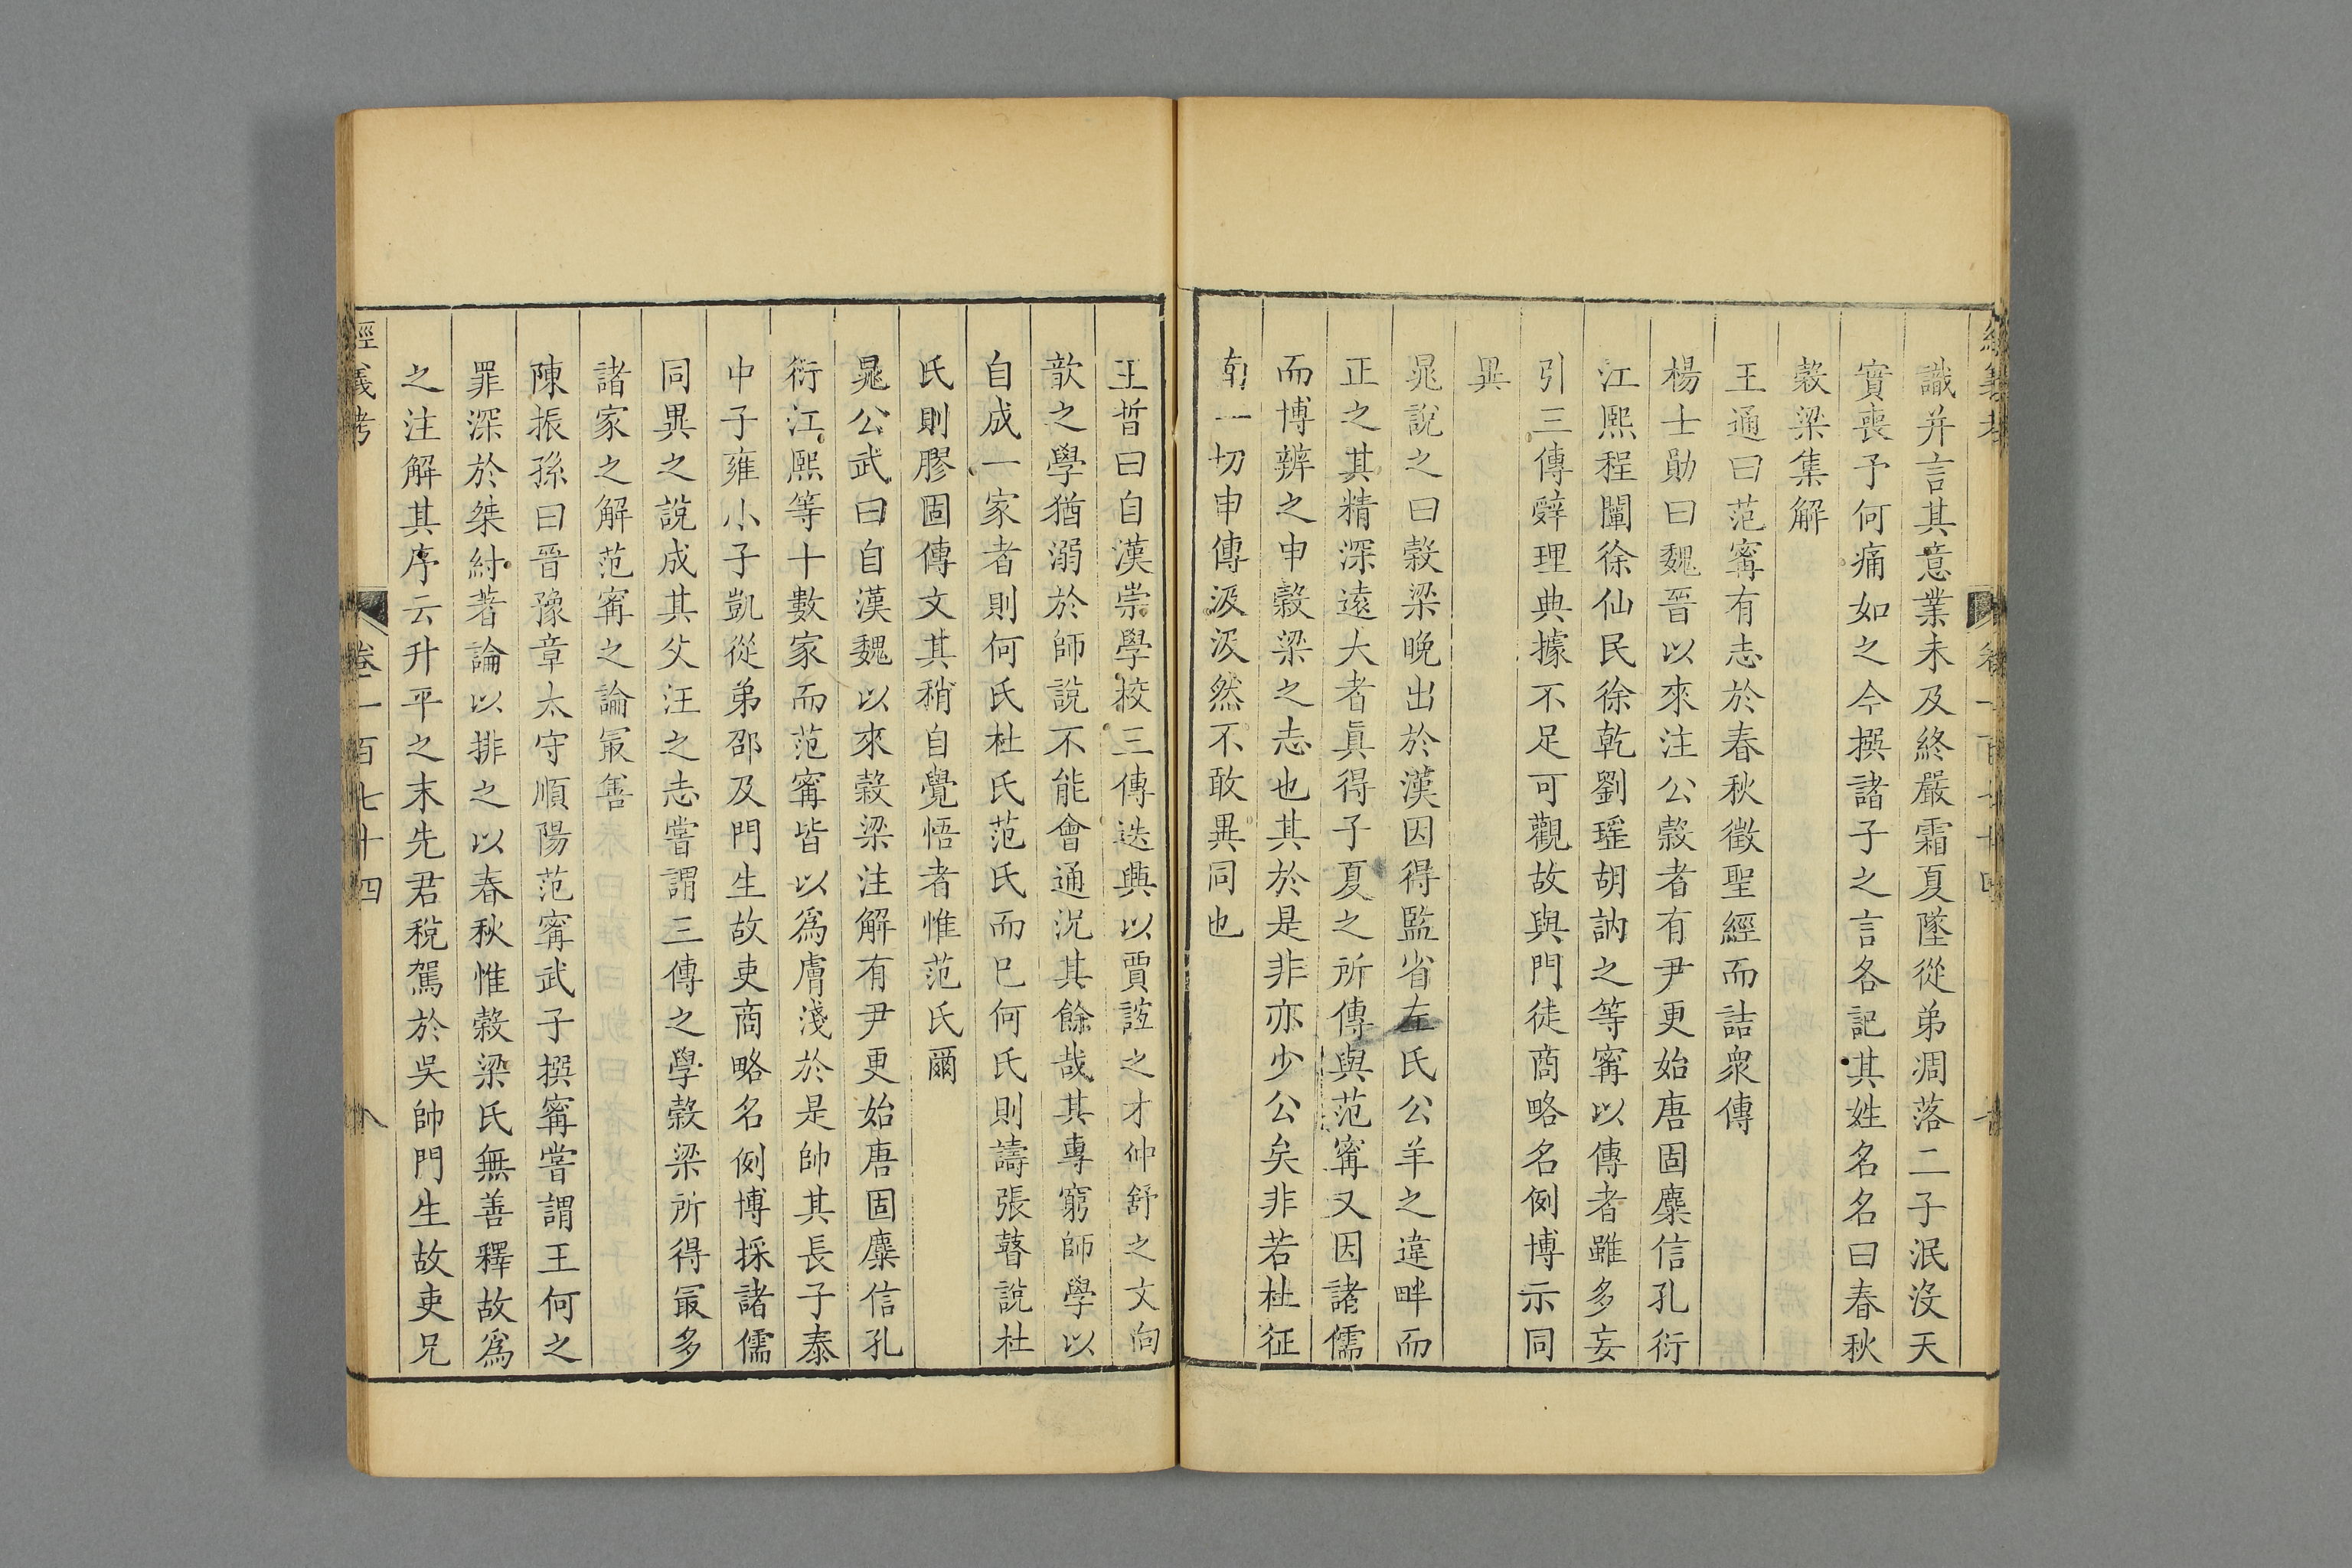 識并言其意業未及終嚴霜夏墜從弟凋落二子泯没天
實喪予何痛如之今撰諸子之言各記其姓名名曰春秋
穀梁集解
王通曰范甯有志於春秋徵聖經而詰衆傳
楊士勛曰魏晉以來注公穀者有尹更始唐固麋信孔衍
江熙程闡徐仙民徐乾劉瑤胡訥之等甯以傳者雖多妄
引三傳辭理典據不足可觀故與門徒商略名例博示同
異
晁說之曰穀梁晚出於漢因得監省左氏公羊之違畔而
正之其精深遠大者眞得子夏之所傳與范甯又因諸儒
而博辨之申穀梁之志也其於是非亦少公矣非若杜征
南一切申傳汲汲然不敢異同也
王晳曰自漢崇學挍三傳迭興以賈誼之才仲舒之文向
歆之學猶溺於師說不能會通況其餘哉其專窮師學以
自成一家者則何氏杜氏范氏而已何氏則譸張瞽說杜
氏則膠固傳文其稍自覺悟者惟范氏爾
晁公武曰自漢魏以來穀梁注解有尹更始唐固麋信孔
衍江熙等十數家而范甯皆以爲膚淺於是帥其長子泰
中子雍小子凱從弟邵及門生故吏商略名例博採諸儒
同異之說成其父汪之志嘗謂三傳之學穀梁所得冣多
諸家之解范甯之論冣善
陳振孫曰晉豫章太守順陽范甯武子撰甯嘗謂王何之
罪深於桀紂著論以排之以春秋惟穀梁氏無善釋故爲
之注解其序云升平之末先君稅駕於吳帥門生故吏兄
經義考 卷一百七十四 八